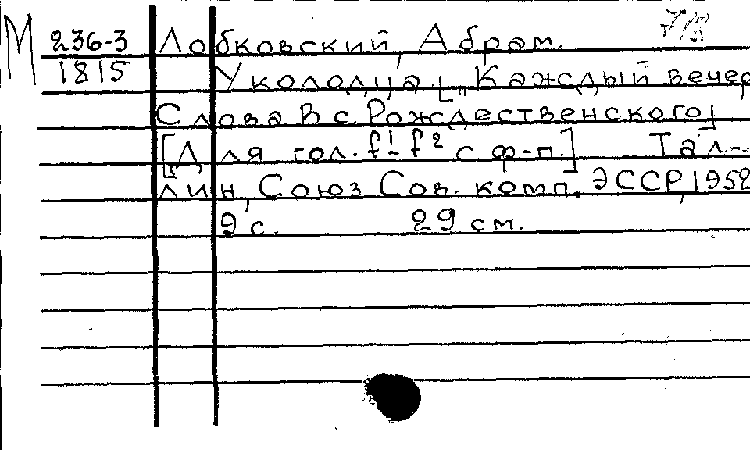 М 236-3 Лобковский, Абрам. 7/8
1815 У колодца [„Каждый вечер
Слова Вс Рождественского]
[Для гол. f¹-f² с ф-п.] Тал-
лин, Союз Сов. комп. ЭССР, 1952
9 с. 29 см.